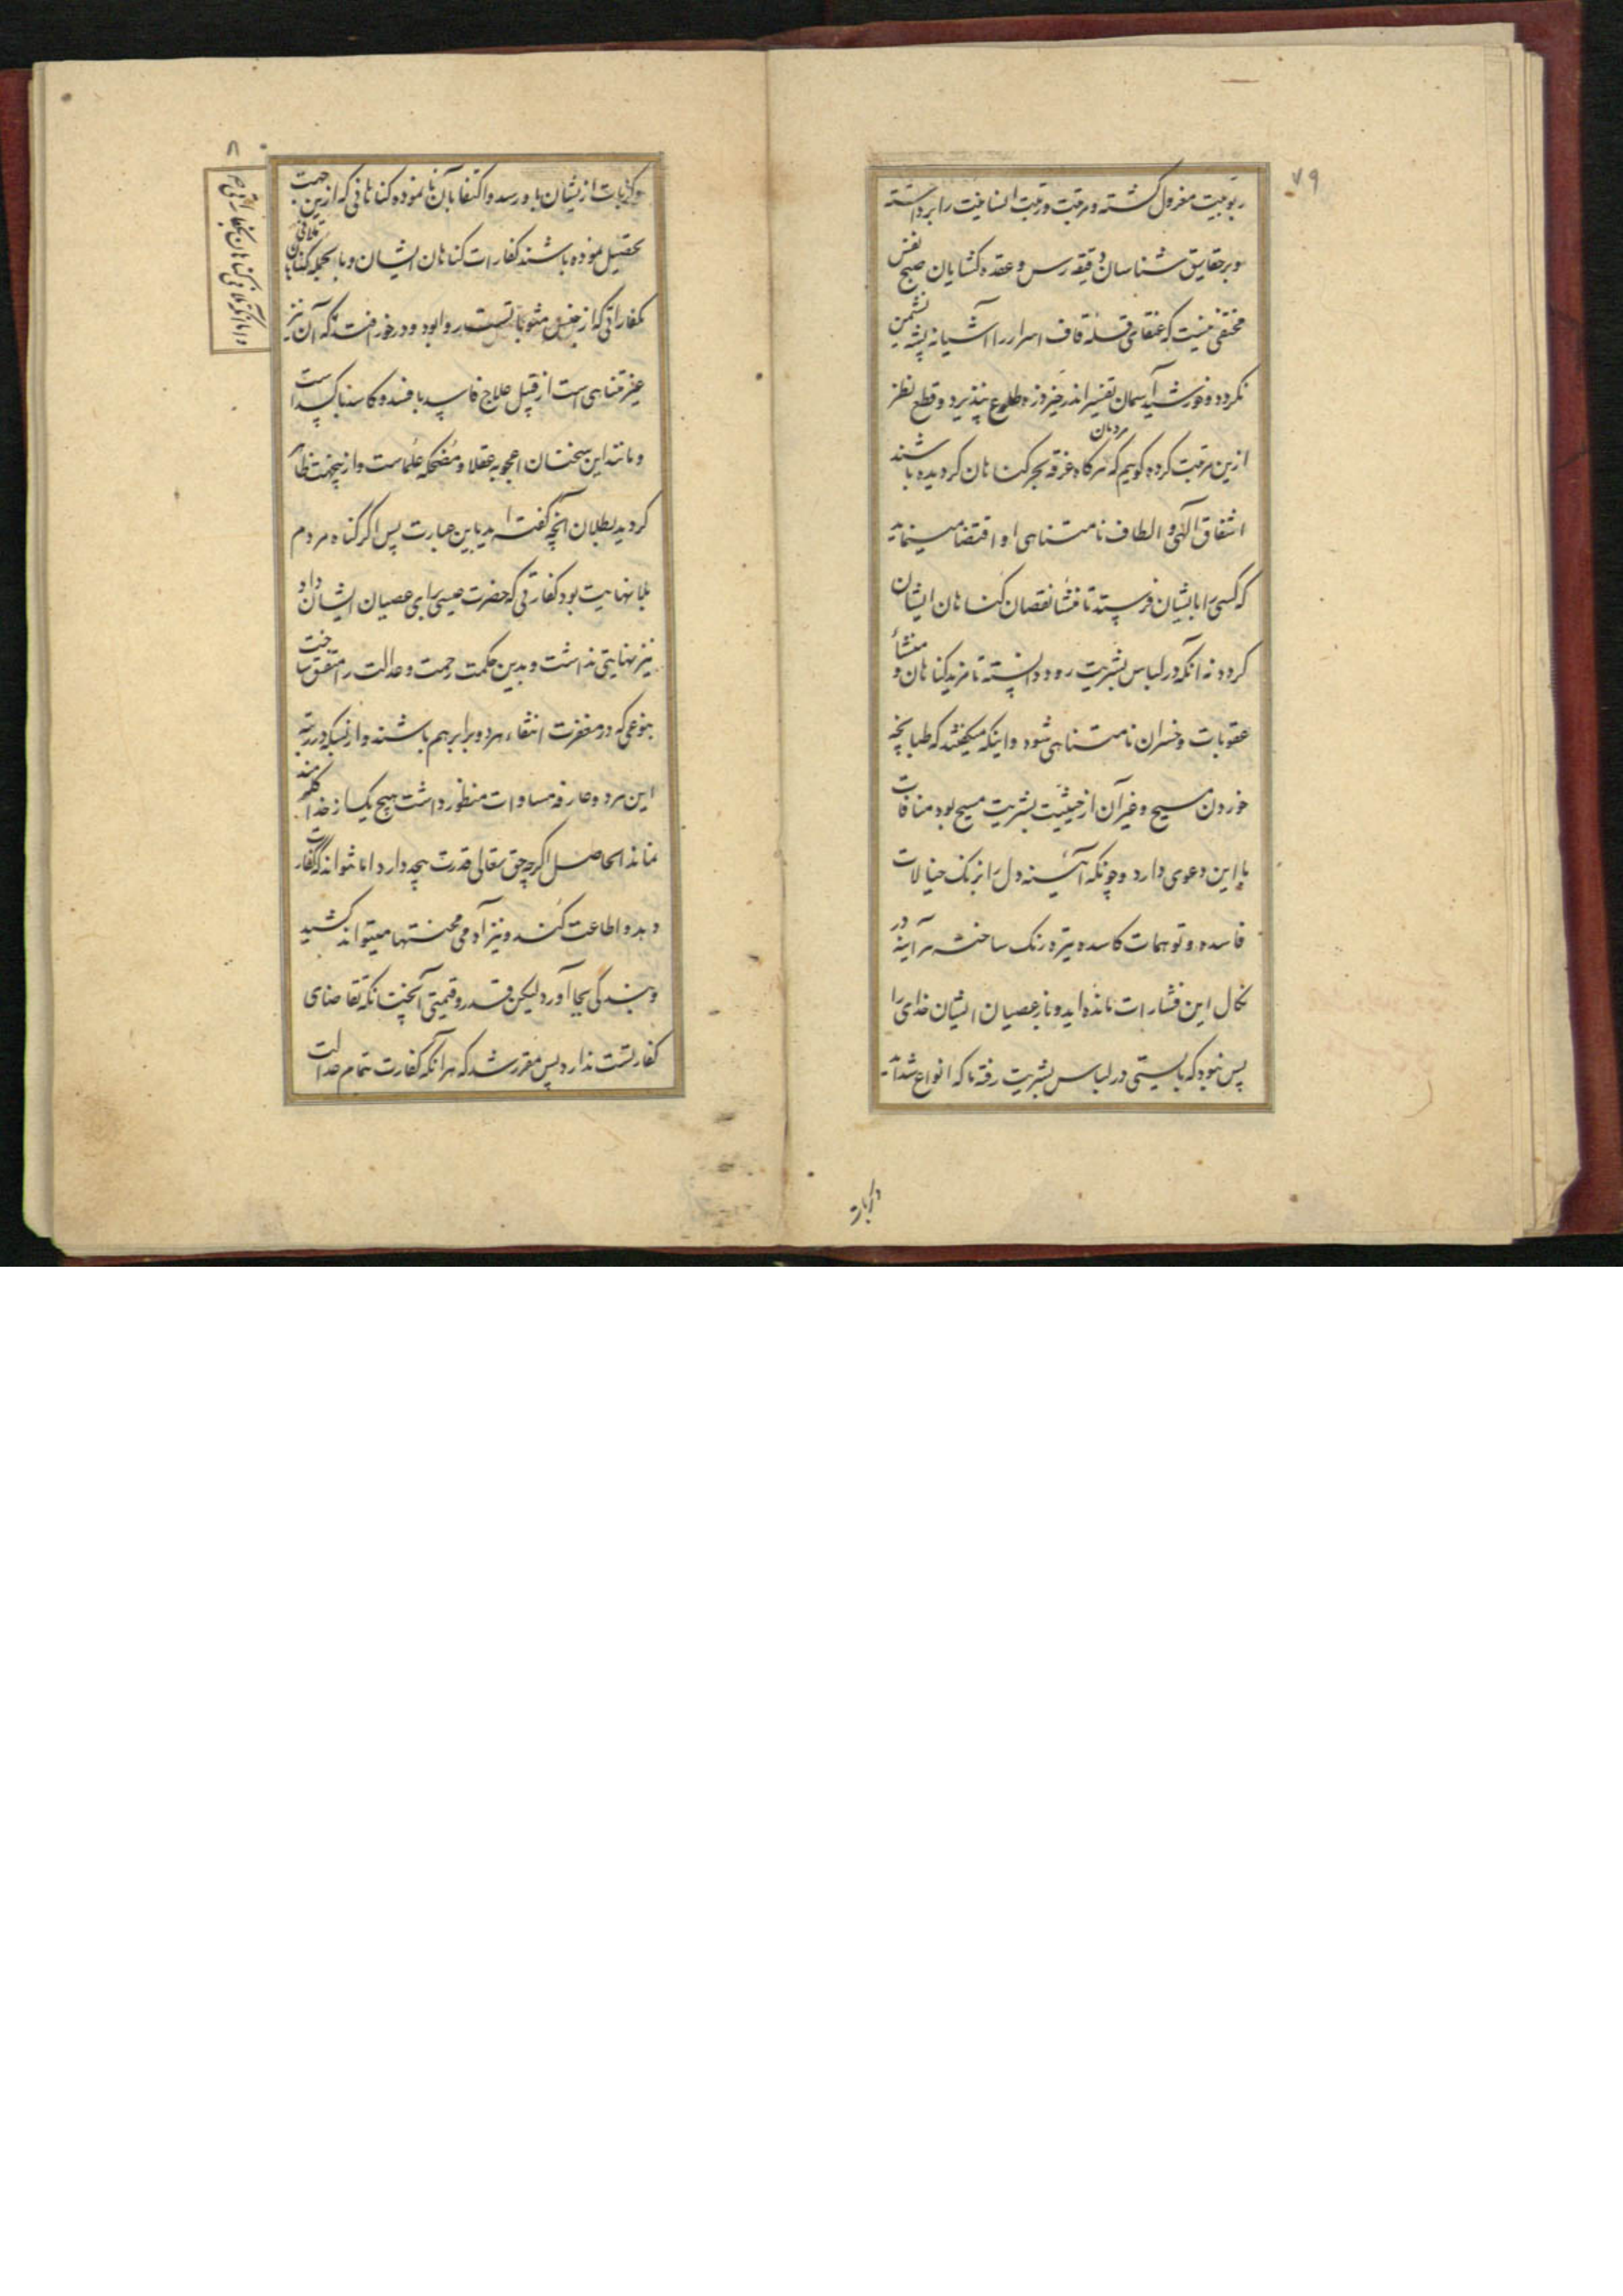 ربوبیت معزول گشته و مرتبت ورتبت انسانیت را برداشته
و بر حقایق شناسان دقیقه رس و عقده کشایان صبح نفس
مختفی نیست که عنقای قلهٔ قاف اسرار را آشیانه پشه نشیمن
نکرده و خورشید آسمان تفسیر اندر خیز ذره طلوع نپذیرد و قطع نظر
ازین مرتبت کرده گوییم که هرگاه مردمان غرقه بحر کناهان کردیده باشند
اشفاق الهی و الطاف نامتناهی او اقتضا مینماید
که کسی را بایشان فرستد تا منشأ نقصان کناهان ایشان
کردد نه آنکه در لباس بشریت رود دانسته تا مزید کناهان و منشأ
عقوبات و خسران نامتناهی شود و اینکه میکفتند که طبانچه
خوردن مسیح و غیر آن از حیثیت بشریت مسیح بود منافات
با این دعوی دارد و چونکه آئینه دل را بزنک خیالات
فاسده و توهمات کاسده تیره رنک ساخته هرآینه در
نکال این فشارات مانده اید و باز عصیان ایشان خدای را
پس نبود که بایستی در لباس بشریت رفته تا که انواع شداید
و کربات
و کربات از ایشان باو رسد و اکتفا بآن نانموده کناهانی که ازین جهت
تحصیل نموده باشند کفارات کناهان ایشان و بالجمله تلافی کناهان
بکفاراتی که از جنس مثوبات نیست روا بود و درخور افتد که آن نیز
غیر متناهی است از قبیل علاج فاسد بافسد و کاسد باکسد است
و مانند این سخنان اعجوبه عقلا و مضحکه علماست و از پنجهت ظاهر
کردید بطلان آنچه گفته اید باین عبارت پس اکر کناه مردم
بلا نهایت بود کفارتی که حضرت عیسی برای عصیان ایشان داد
نیز نهایتی نداشت و بدین حکمت رحمت و عدالت را متفق ساخت
بنوعی که در مغفرت انتفاء هر دو برابر هم باشند و از نیکه در رتبه
این هر دو عارفه مساوات منظور داشت هیچ یک از خدا کله مند
نماند الحاصل اکرچه حق تعالی قدرت بیحد دارد اما نتواند که کفارت
دهد و اطاعت کند و نیز آدمی محنتها میتواند کشید
و بندکی بجا آورد لیکن قدر و قیمتی آنچنانکه تقاضای
کفارتست ندارد پس مقرر شد که هرآنکه کفارت تمام عدالت